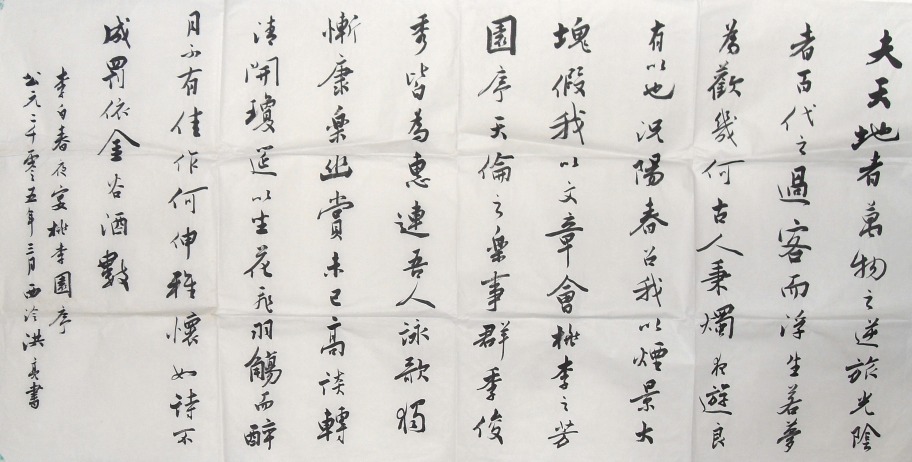 夫天地者萬物之逆旅光陰
者百代之過客而浮生若夢
為歡幾何古人秉燭夜遊良
有以也況陽春召我以煙景大
塊假我以文章會桃李之芳
園序天倫之樂事群季俊
秀皆為惠連吾人詠歌獨
慚康樂幽賞未已高談轉
清開瓊筵以坐花飛羽觴而醉
月不有佳作何伸雅懷如詩不
成罰依金谷酒數
李白春夜宴桃李園序
公元二千零五年三月西泠洪亮書